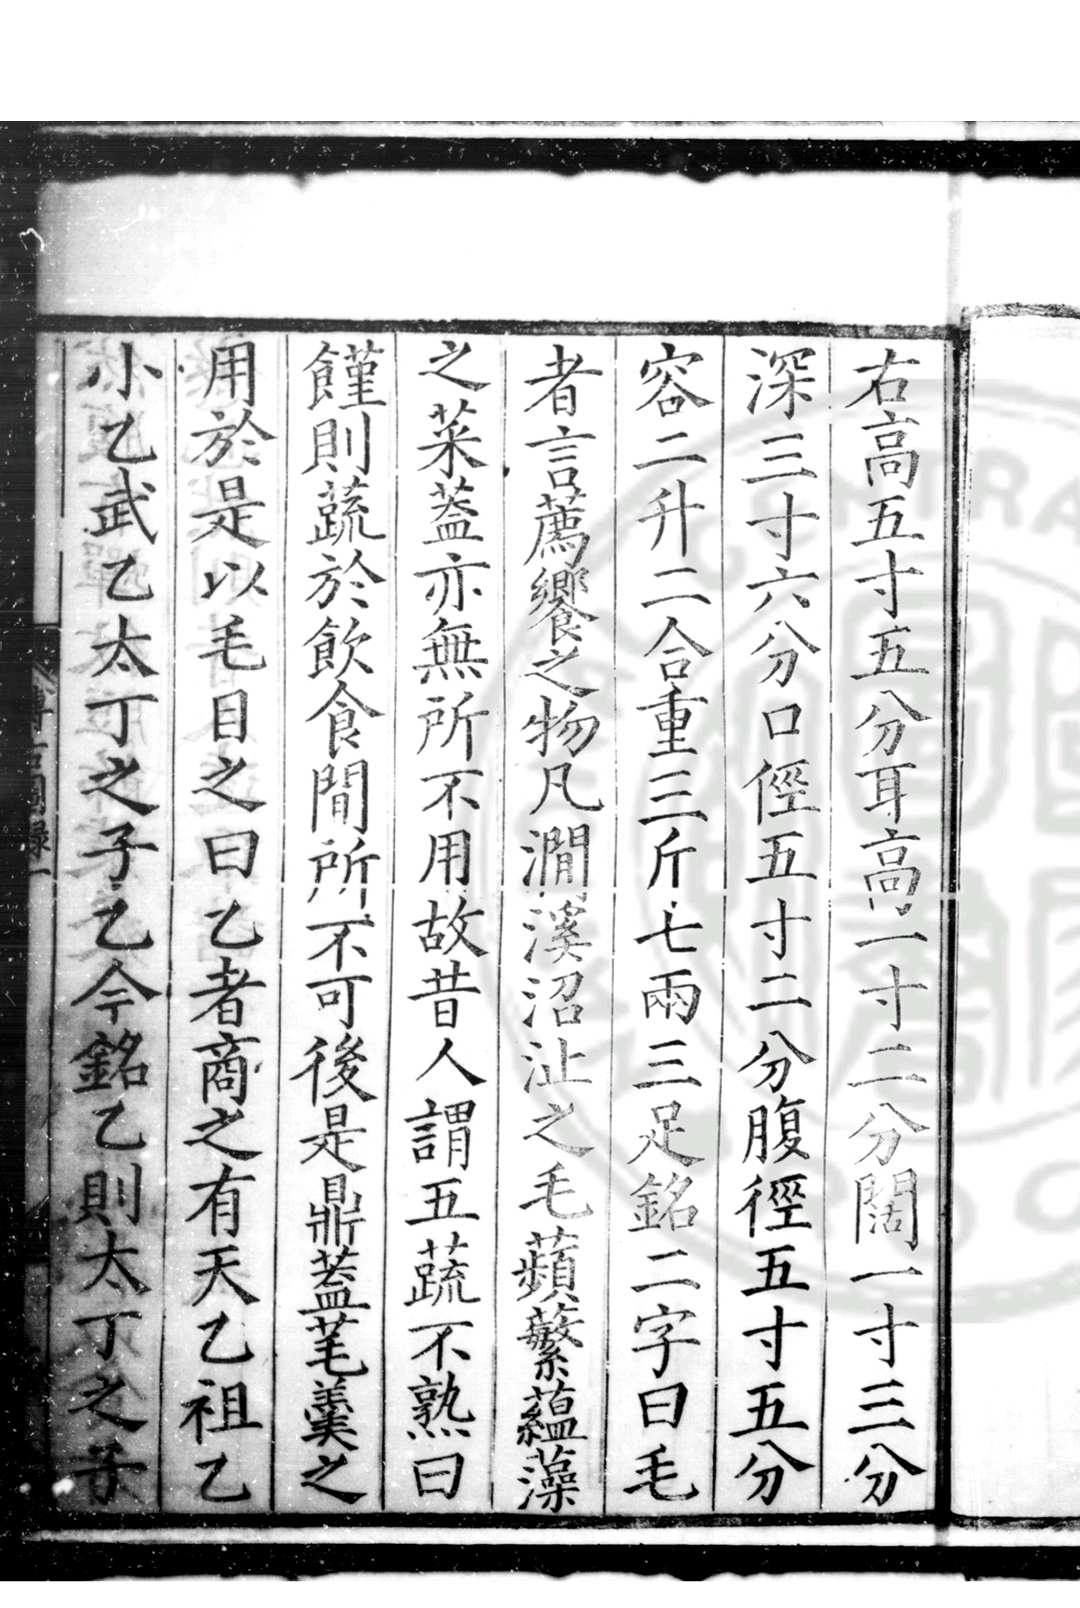 右高五寸五分耳高一寸二分闊一寸三分
深三寸六分口俓五寸二分腹徑五寸五分
容二升二合重三斤七兩三足銘二字曰毛
者言薦饗之物凡澗溪沼沚之毛蘋蘩蘊藻
之菜葢亦無所不用故昔人謂五蔬不熟曰
饉則蔬於飲食間所不可後是鼎葢芼羹之
用於是以毛目之曰乙者商之有天乙祖乙
小乙武乙太丁之子乙今銘乙則太丁之子